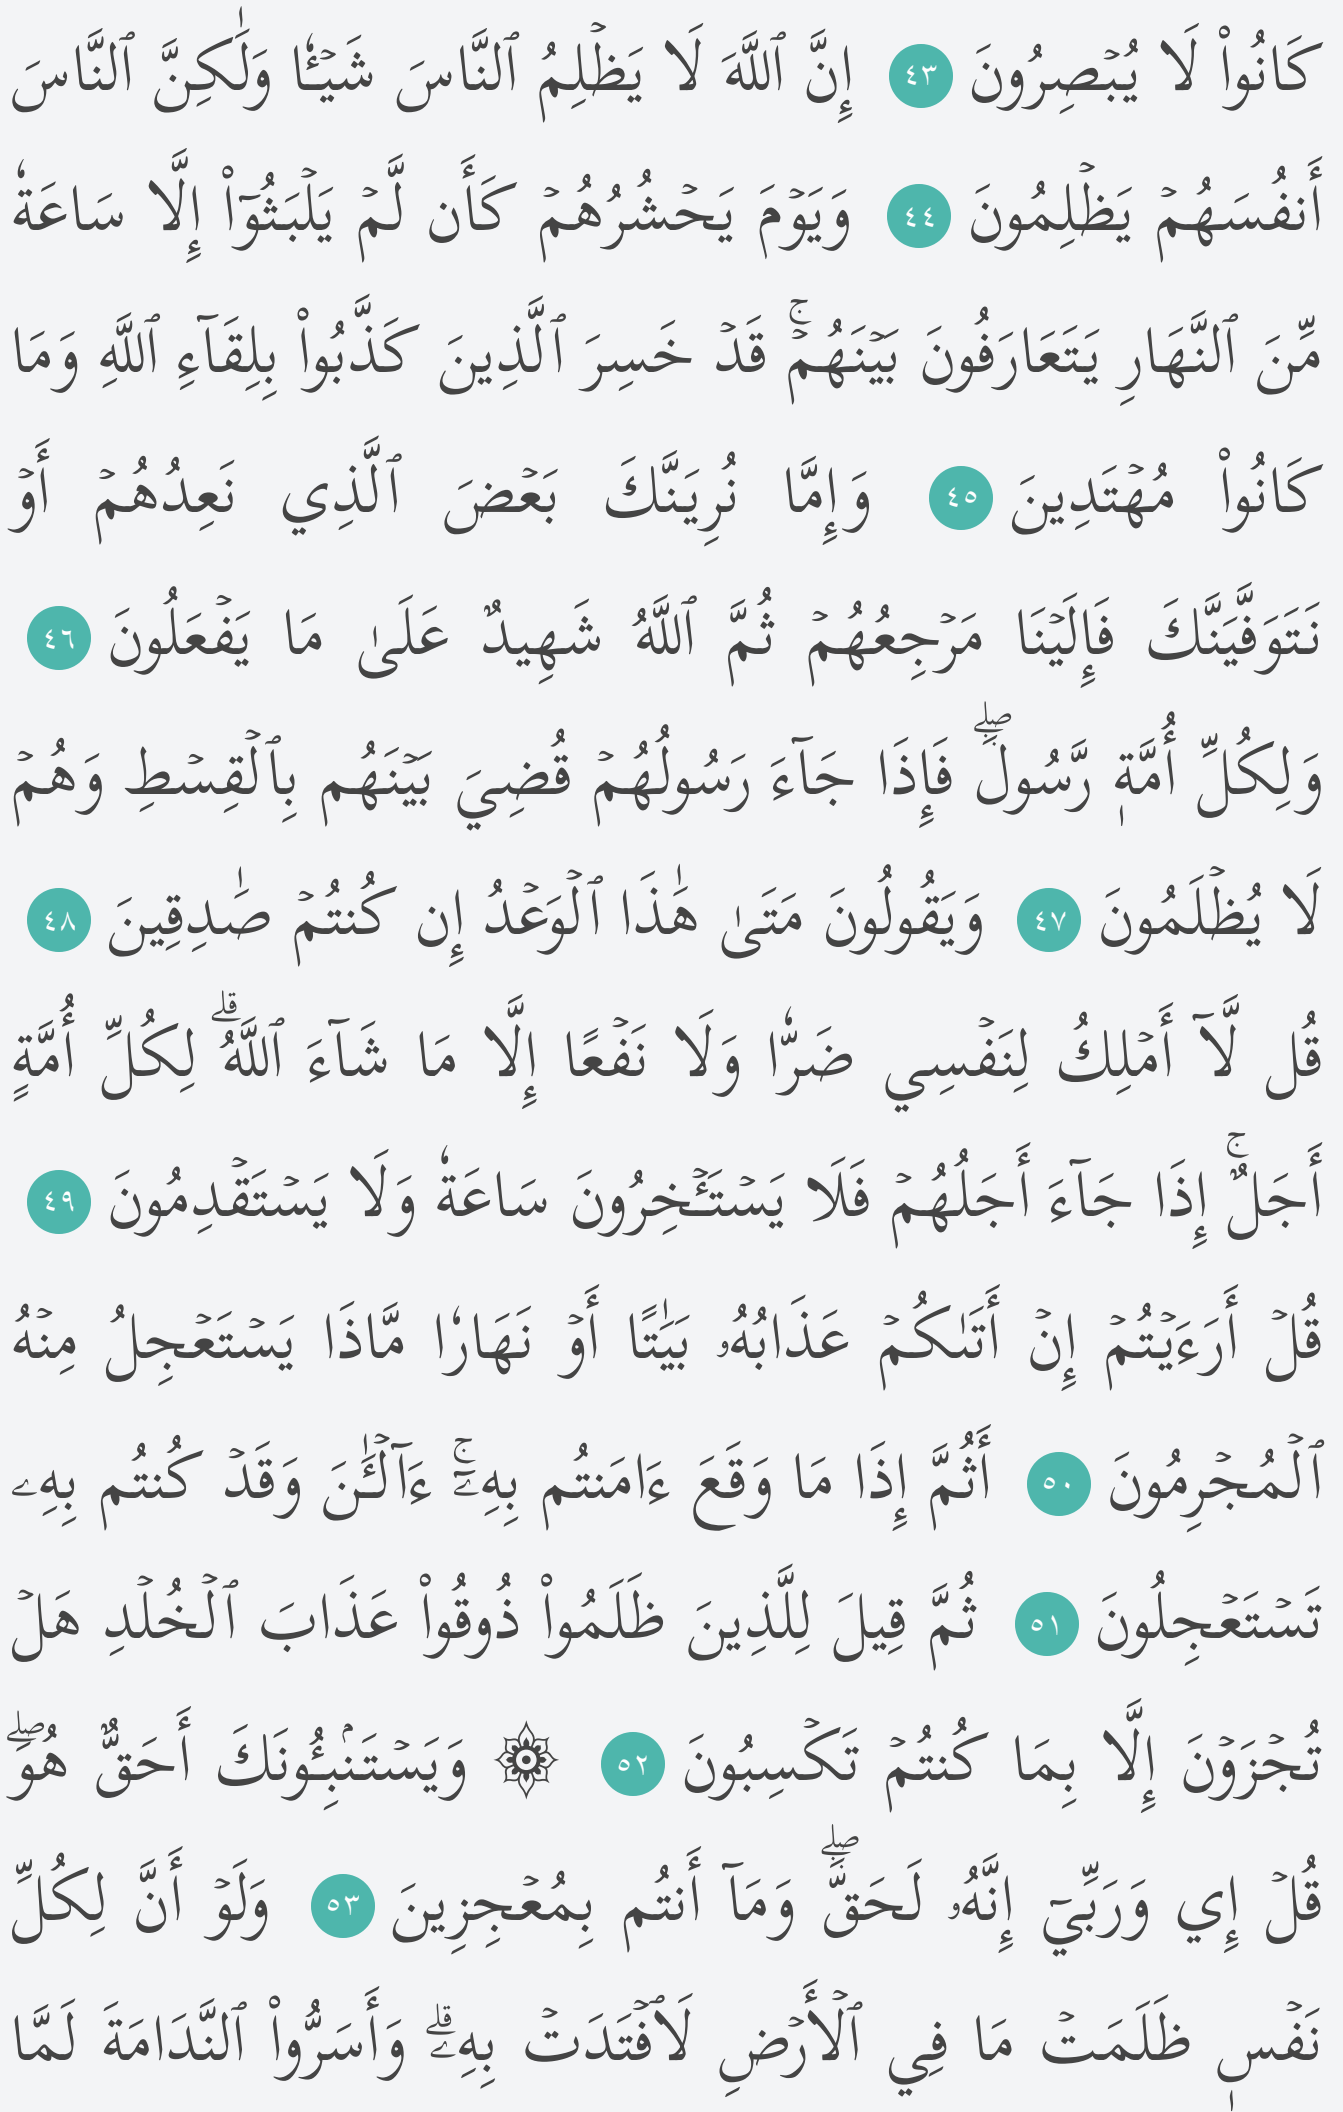 كَانُواْ لَا يُبۡصِرُونَ ٤٣ إِنَّ ٱللَّهَ لَا يَظۡلِمُ ٱلنَّاسَ شَيۡـٔٗا وَلَٰكِنَّ ٱلنَّاسَ
أَنفُسَهُمۡ يَظۡلِمُونَ ٤٤ وَيَوۡمَ يَحۡشُرُهُمۡ كَأَن لَّمۡ يَلۡبَثُوٓاْ إِلَّا سَاعَةٗ
مِّنَ ٱلنَّهَارِ يَتَعَارَفُونَ بَيۡنَهُمۡۚ قَدۡ خَسِرَ ٱلَّذِينَ كَذَّبُواْ بِلِقَآءِ ٱللَّهِ وَمَا
كَانُواْ مُهۡتَدِينَ ٤٥ وَإِمَّا نُرِيَنَّكَ بَعۡضَ ٱلَّذِي نَعِدُهُمۡ أَوۡ
نَتَوَفَّيَنَّكَ فَإِلَيۡنَا مَرۡجِعُهُمۡ ثُمَّ ٱللَّهُ شَهِيدٌ عَلَىٰ مَا يَفۡعَلُونَ ٤٦
وَلِكُلِّ أُمَّةٖ رَّسُولٞۖ فَإِذَا جَآءَ رَسُولُهُمۡ قُضِيَ بَيۡنَهُم بِٱلۡقِسۡطِ وَهُمۡ
لَا يُظۡلَمُونَ ٤٧ وَيَقُولُونَ مَتَىٰ هَٰذَا ٱلۡوَعۡدُ إِن كُنتُمۡ صَٰدِقِينَ ٤٨
قُل لَّآ أَمۡلِكُ لِنَفۡسِي ضَرّٗا وَلَا نَفۡعًا إِلَّا مَا شَآءَ ٱللَّهُۗ لِكُلِّ أُمَّةٍ
أَجَلٌۚ إِذَا جَآءَ أَجَلُهُمۡ فَلَا يَسۡتَـٔۡخِرُونَ سَاعَةٗ وَلَا يَسۡتَقۡدِمُونَ ٤٩
قُلۡ أَرَءَيۡتُمۡ إِنۡ أَتَىٰكُمۡ عَذَابُهُۥ بَيَٰتًا أَوۡ نَهَارٗا مَّاذَا يَسۡتَعۡجِلُ مِنۡهُ
ٱلۡمُجۡرِمُونَ ٥٠ أَثُمَّ إِذَا مَا وَقَعَ ءَامَنتُم بِهِۦٓۚ ءَآلۡـَٰٔنَ وَقَدۡ كُنتُم بِهِۦ
تَسۡتَعۡجِلُونَ ٥١ ثُمَّ قِيلَ لِلَّذِينَ ظَلَمُواْ ذُوقُواْ عَذَابَ ٱلۡخُلۡدِ هَلۡ
تُجۡزَوۡنَ إِلَّا بِمَا كُنتُمۡ تَكۡسِبُونَ ٥٢ ۞ وَيَسۡتَنۢبِـُٔونَكَ أَحَقٌّ هُوَۖ
قُلۡ إِي وَرَبِّيٓ إِنَّهُۥ لَحَقّٞۖ وَمَآ أَنتُم بِمُعۡجِزِينَ ٥٣ وَلَوۡ أَنَّ لِكُلِّ
نَفۡسٖ ظَلَمَتۡ مَا فِي ٱلۡأَرۡضِ لَٱفۡتَدَتۡ بِهِۦۗ وَأَسَرُّواْ ٱلنَّدَامَةَ لَمَّا